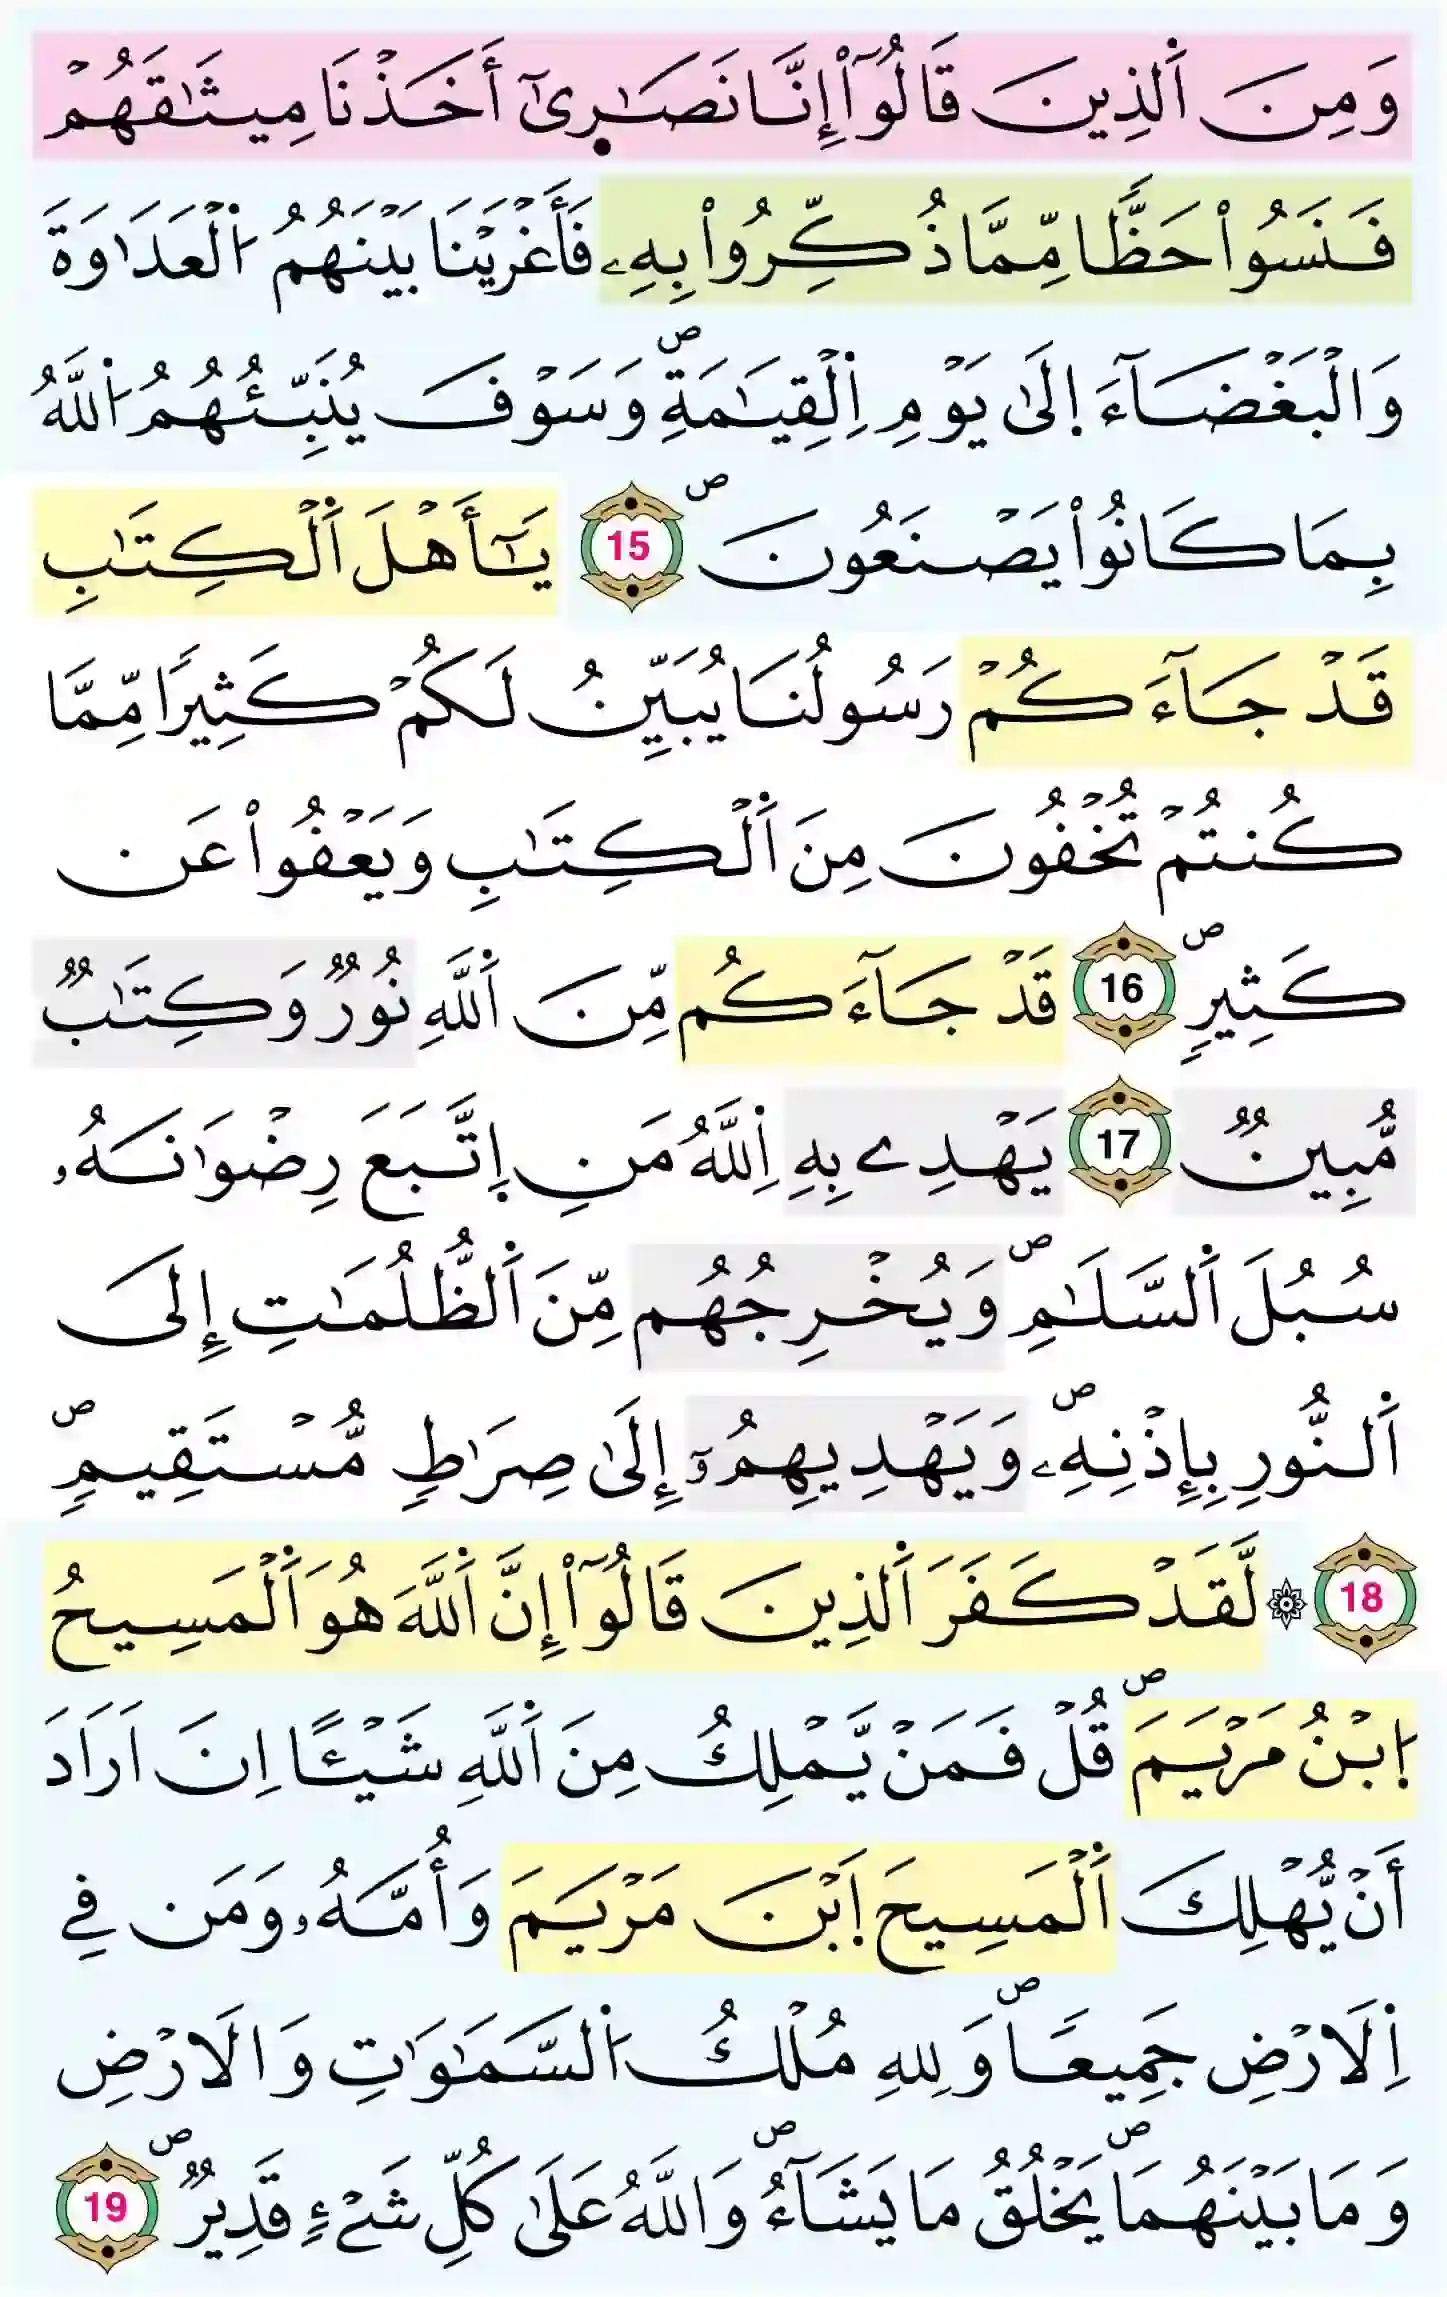 وَمِنَ اَ۬لذِينَ قَالُوٓاْ إِنَّا نَصَٰر۪يٰٓ أَخَذْنَا مِيثَٰقَهُمْ
فَنَسُواْ حَظّاٗ مِّمَّا ذُكِّرُواْ بِهِۦ فَأَغْرَيْنَا بَيْنَهُمُ اُ۬لْعَدَٰوَةَ
وَالْبَغْضَآءَ اِ۪لَىٰ يَوْمِ اِ۬لْقِيَٰمَةِۖ وَسَوْفَ يُنَبِّئُهُمُ اُ۬للَّهُ
بِمَا كَانُواْ يَصْنَعُونَۖ 15 يَٰٓأَهْلَ اَ۬لْكِتَٰبِ
قَدْ جَآءَكُمْ رَسُولُنَا يُبَيِّنُ لَكُمْ كَثِيراٗ مِّمَّا
كُنتُمْ تُخْفُونَ مِنَ اَ۬لْكِتَٰبِ وَيَعْفُواْ عَن
كَثِيرٖۖ 16 قَدْ جَآءَكُم مِّنَ اَ۬للَّهِ نُورٞ وَكِتَٰبٞ
مُّبِينٞ 17 يَهْدِے بِهِ اِ۬للَّهُ مَنِ اِ۪تَّبَعَ رِضْوَٰنَهُۥ
سُبُلَ اَ۬لسَّلَٰمِۖ وَيُخْرِجُهُم مِّنَ اَ۬لظُّلُمَٰتِ إِلَى
اَ۬لنُّورِ بِإِذْنِهِۦۖ وَيَهْدِيهِمُۥٓ إِلَىٰ صِرَٰطٖ مُّسْتَقِيمٖۖ
18 ۞ لَّقَدْ كَفَرَ اَ۬لذِينَ قَالُوٓاْ إِنَّ اَ۬للَّهَ هُوَ اَ۬لْمَسِيحُ
اُ۪بْنُ مَرْيَمَۖ قُلْ فَمَنْ يَّمْلِكُ مِنَ اَ۬للَّهِ شَيْـٔاً اِنَ اَرَادَ
أَنْ يُّهْلِكَ اَ۬لْمَسِيحَ اَ۪بْنَ مَرْيَمَ وَأُمَّهُۥ وَمَن فِے
اِ۬لَارْضِ جَمِيعاٗۖ وَلِلهِ مُلْكُ اُ۬لسَّمَٰوَٰتِ وَالَارْضِ
وَمَا بَيْنَهُمَاۖ يَخْلُقُ مَا يَشَآءُۖ وَاللَّهُ عَلَىٰ كُلِّ شَےْءٖ قَدِيرٞۖ 19